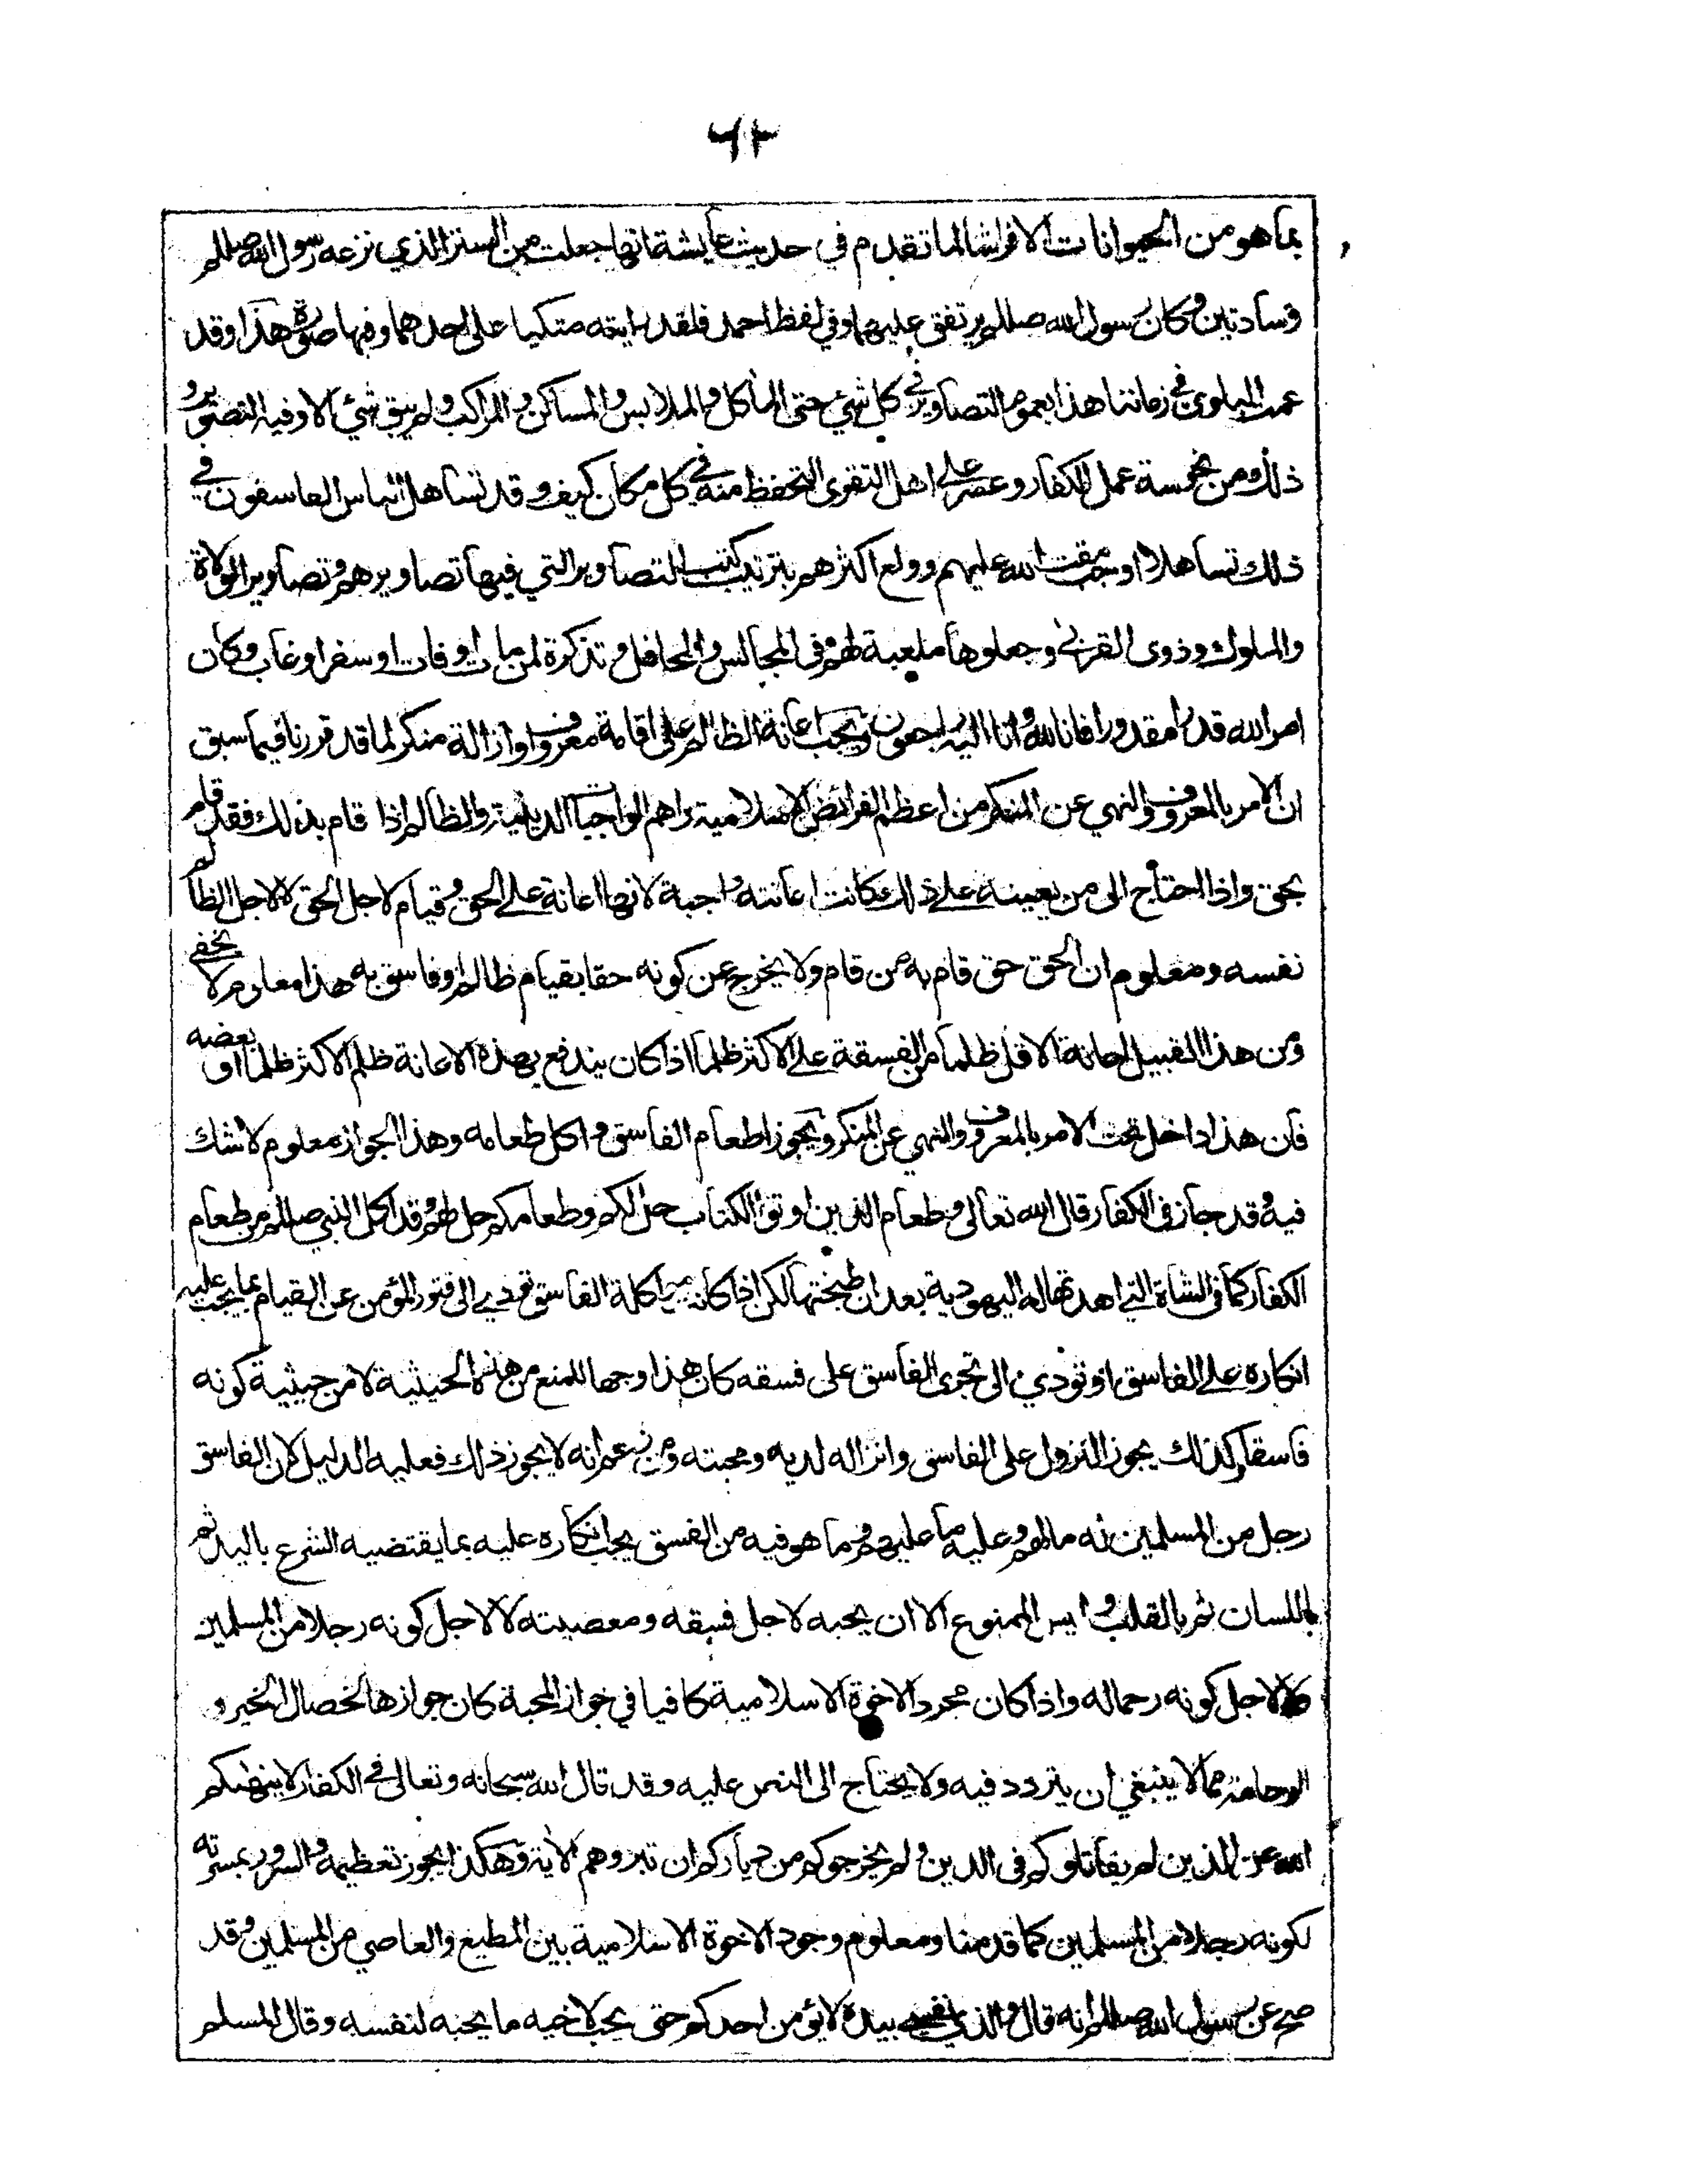 ٦٢
بما هو من الحيوانات الا فراشا لما تقدم في حديث عايشة انها جعلت من الستر الذي نزعه رسول الله صللم
وسادتين وكان رسول الله صللم يرتفق عليهما وفي لفظ احمد فلقد رايته متكيا على احدهما وفيها صورة هذا وقد
عمت البلوى في زماننا هذا بعموم التصاوير في كل شيء حتى المأكل والملابس والمساكن والمراكب ولم يبق شيء الا وفيه التصوير و
ذلك من نحوسة عمل الكفار وعسر على اهل التقوى التحفظ منه في كل مكان كيف وقد تساهل الناس الفاسقون في
ذلك تساهلا اوجب مقت الله عليهم وولع اكثرهم بترتيب كتب التصاوير التي فيها تصاويرهم وتصاوير الولاة
والملوك وذوى القربى وجعلوها ملعبة لهم في المجالس والمحافل وتذكرة لمن مات او فات او سفر او غاب وكان
امر الله قدرا مقدورا فانا لله وانا اليه راجعون ويجب اعانة الظالم على اقامة معروف او ازالة منكر لما قد قررنا فيما سبق
ان الامر بالمعروف والنهي عن المنكر من اعظم الفرائض الاسلامية واهم الواجبات الدينية والظالم اذا قام بذلك فقد قام
بحق واذا احتاج الى من يعينه على ذلك كانت اعانته واجبة لانها اعانة على الحق وقيام لاجل الحق لا لاجل الظالم
نفسه ومعلوم ان الحق حق قام به من قام ولا يخرج عن كونه حقا بقيام ظالم او فاسق به هذا معلوم لا يخفى
ومن هذا القبيل اعانة الاقل ظلما من الفسقة على الاكثر ظلما اذا كان يندفع بهذه الاعانة ظلم الاكثر ظلما او بعضه
فان هذا داخل تحت الامر بالمعروف والنهي عن المنكر ويجوز اطعام الفاسق واكل طعامه وهذا الجواز معلوم لا شك
فيه وقد جاز في الكفار قال الله تعالى وطعام الذين اوتوا الكتاب حل لكم وطعامكم حل لهم وقد اكل النبي صللم من طعام
الكفار كما في الشاة التي اهدتها له اليهودية بعد ان طبختها لكن اذا كانت مواكلة الفاسق تودي الى فتور المؤمن عن القيام بما يجب عليه
انكاره على الفاسق او تودي الى تجرى الفاسق على فسقه كان هذا وجها للمنع من هذه الحيثية لا من حيثية كونه
فاسقا وكذلك يجوز النزول على الفاسق وانزاله لديه ومحبته ومن زعم انه لا يجوز ذلك فعليه الدليل لان الفاسق
رجل من المسلمين له ما لهم وعليه ما عليهم وما هو فيه من الفسق يجب انكاره عليه بما يقتضيه الشرع باليد ثم
باللسان ثم بالقلب وليس الممنوع الا ان يحبه لاجل فسقه ومعصيته لا لاجل كونه رجلا من المسلمين
ولا لاجل كونه رحما له واذا كان مجرد الاخوة الاسلامية كافيا في جواز المحبة كان جوازها لخصال الخير و
الرحامة مما لا ينبغي ان يتردد فيه ولا يحتاج الى النص عليه وقد قال الله سبحانه وتعالى في الكفار لا ينهىكم
الله عن الذين لم يقاتلوكم في الدين ولم يخرجوكم من دياركم ان تبروهم الاية وهكذا يجوز تعظيمه والسرور بمسرته
لكونه رجلا من المسلمين كما قدمنا ومعلوم وجود الاخوة الاسلامية بين المطيع والعاصي من المسلمين وقد
صح عن رسول الله صللم انه قال والذي نفسي بيده لا يؤمن احدكم حتى يحب لاخيه ما يحبه لنفسه وقال المسلم